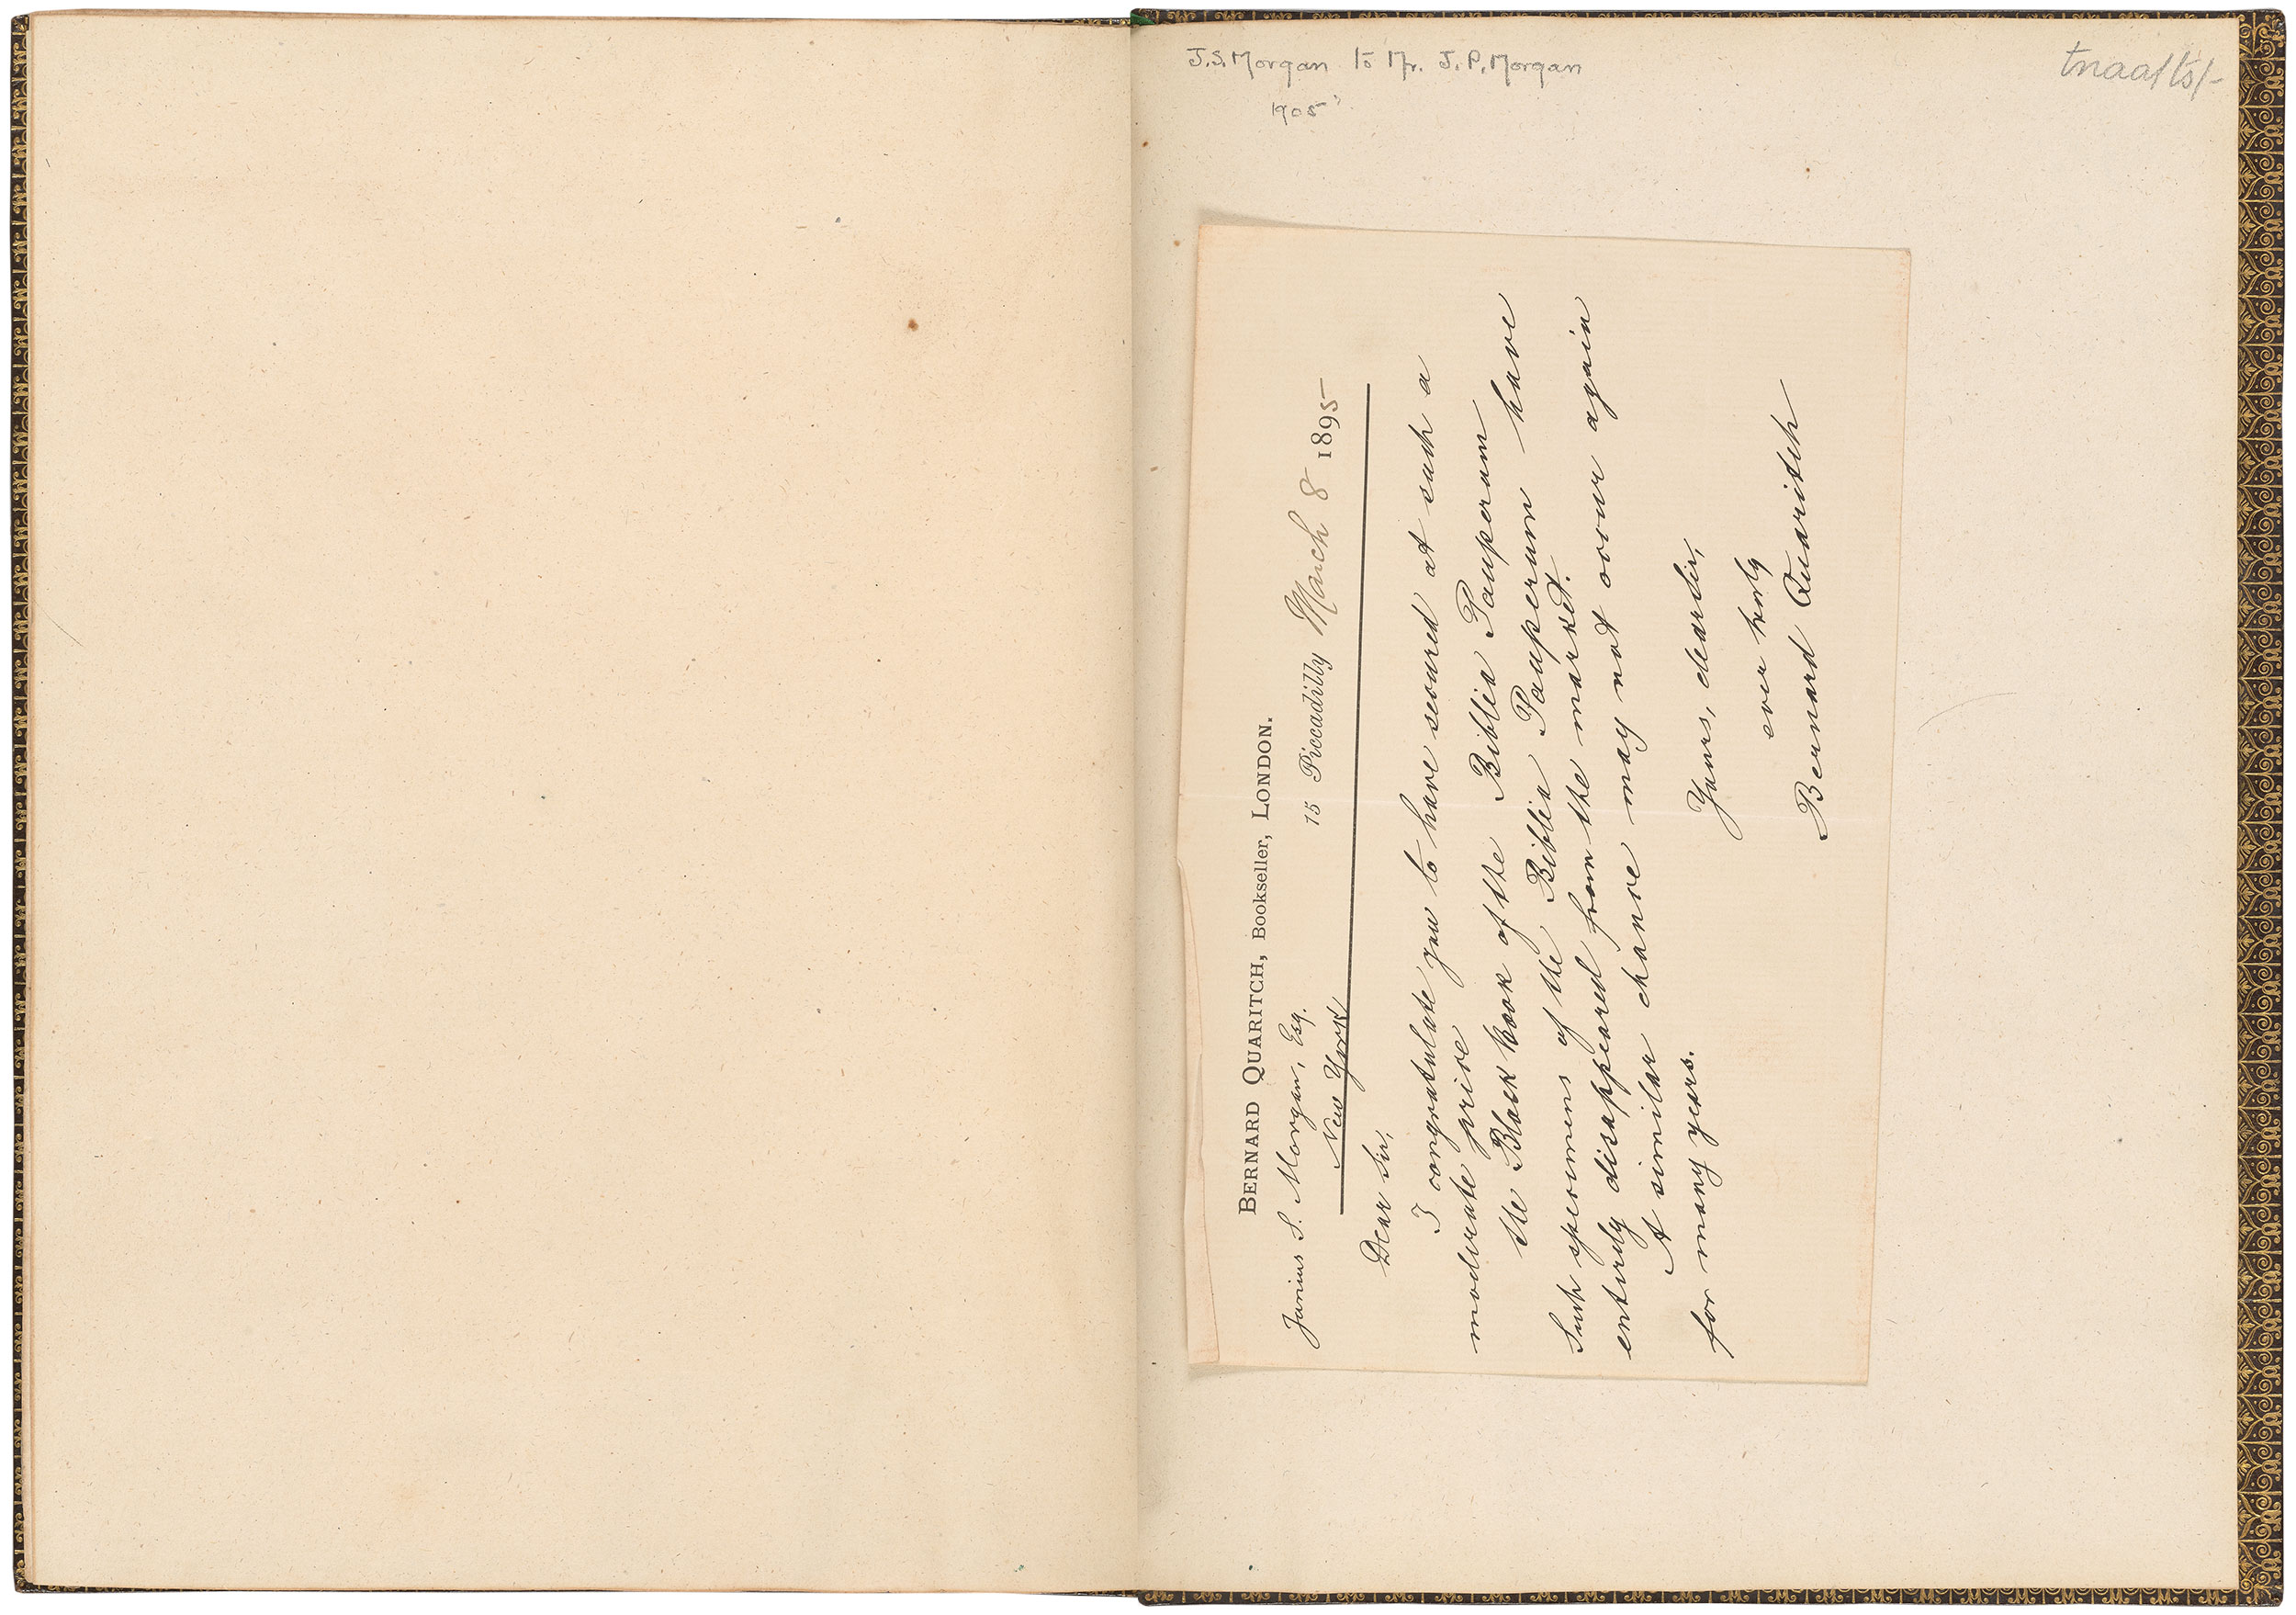 J.S. Morgan to Mr. J.P. Morgan
1905
tnaa/ts/-
BERNARD QUARITCH, Bookseller, LONDON.
Junius S. Morgan, Esq.
New York
15 Piccadilly March 8 1895
Dear Sir,
I congratulate you to have secured at such a
moderate price
the Black Book of the Biblia Pauperum
Such specimens of the Biblia Pauperum have
entirely disappeared from the market.
A similar chance may not occur again
for many years.
Yours, dear Sir,
ever truly
Bernard Quaritch